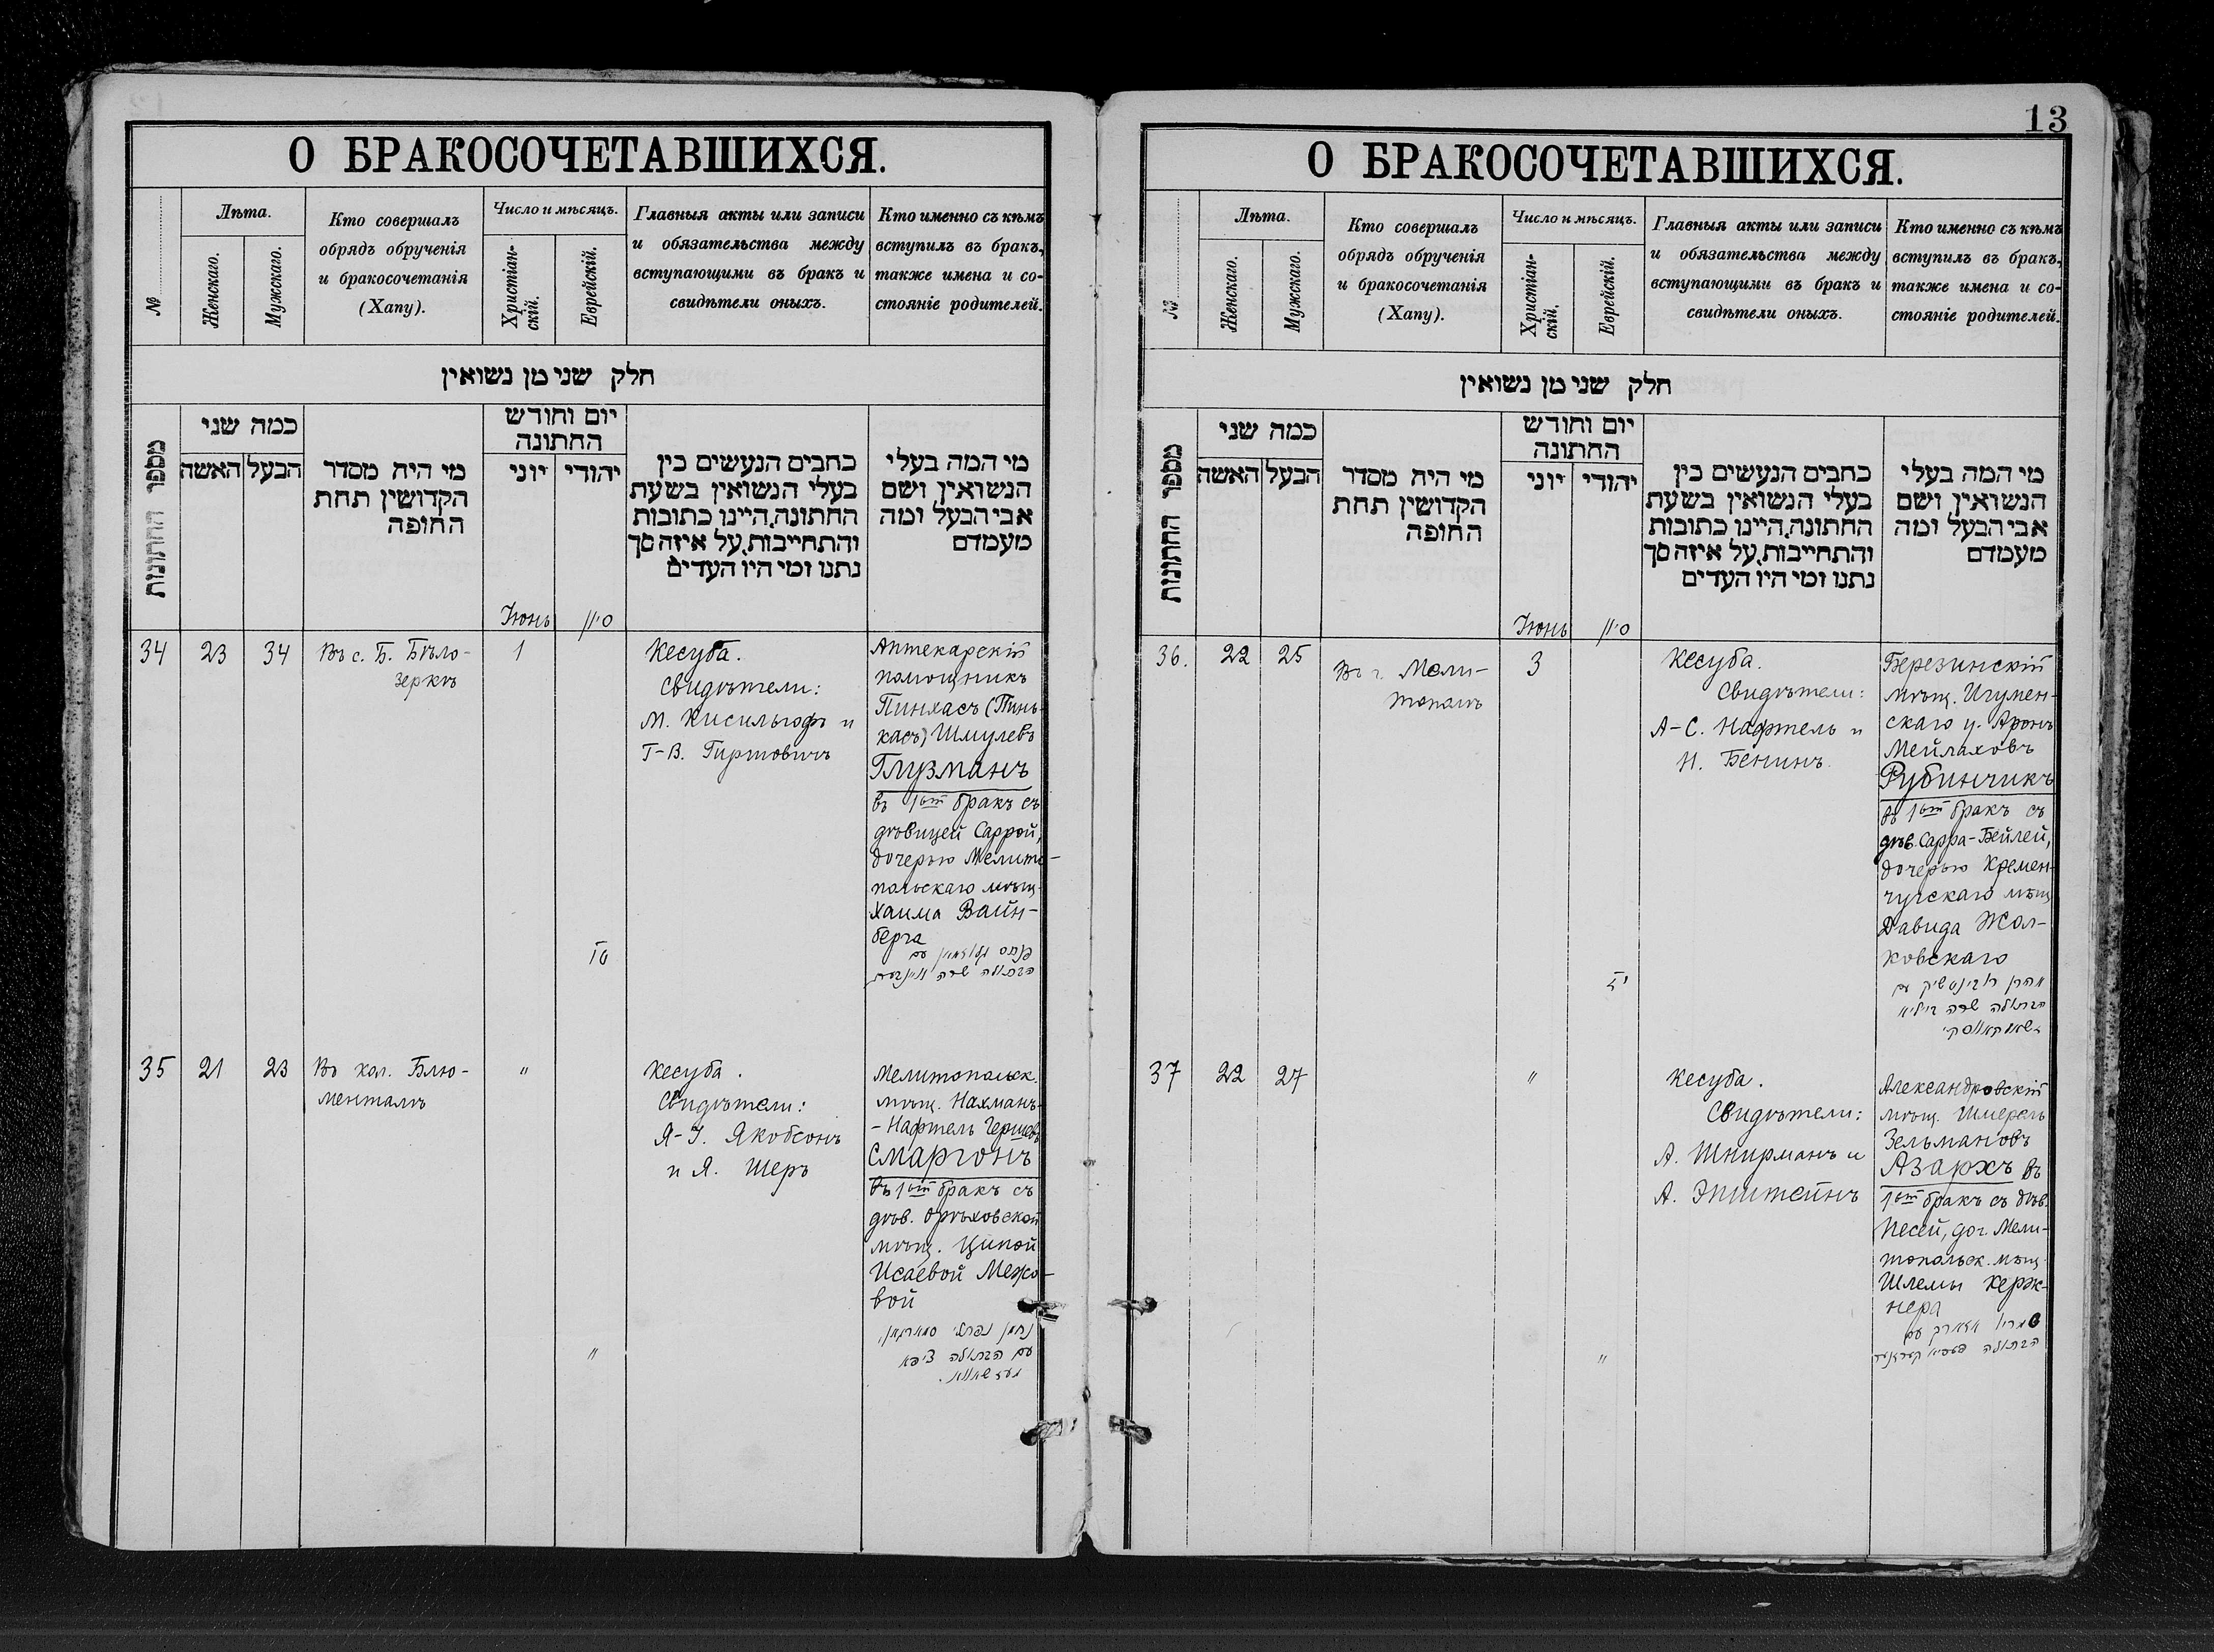 О БРАКОСОЧЕТАВШИХСЯ.
№
Лѣта.
Женскаго.
Мужскаго.
Кто совершалъ
обрядъ обрученія
и бракосочетанія
(Хапу).
Число и мѣсяцъ.
Христіан-
скій.
Еврейскій.
Главныя акты или записи
и обязательства между
вступающими въ бракъ и
свидѣтели оныхъ.
Кто именно съ кѣмъ
вступилъ въ бракъ,
также имена и со-
стояніе родителей.
חלק שני מן נשואין
מספר החתונות
כמה שני
האשה
הבעל
מי היה מסדר
הקדושין תחת
החופה
יום וחודש
החתונה
יוני
יהודי
כתבים הנעשים בין
בעלי הנשואין בשעת
החתונה, היינו כתובות
והתחייבות, על איזה סך
נתנו ומי היו העדים
מי המה בעלי
הנשואין ושם
אבי הבעל ומה
מעמדם
Іюнь
סיון
34
23
34
Въ с. Б. Бѣло-
зеркѣ
1
טו
Кесуба.
Свидѣтели:
М. Кисильгофъ и
Г-В. Гиртовичъ
Аптекарскій
помощникъ
Пинхасъ (Пинь-
касъ) Шмулевъ
Глузманъ
въ 1ый бракъ съ
дѣвицей Саррой,
дочерью Мелито-
польскаго мѣщ.
Хаима Вайн-
берга
פנחס גלוזמאן עם
הבתולה שרה וויינבערג
35
21
23
Въ кол. Блю-
менталѣ
"
"
Кесуба.
Свидѣтели:
Я-І. Якобсонъ
и Я. Шеръ
Мелитопольск.
мѣщ. Нахманъ-
-Нафтель Гершевъ
Смаргонъ
въ 1ый бракъ съ
дѣв. Орѣховской
мѣщ. Ципой
Исаевой Межо-
вой
נחמן נפתלי סמארגאן
עם הבתולה ציפא
13
О БРАКОСОЧЕТАВШИХСЯ.
№
Лѣта.
Женскаго.
Мужскаго.
Кто совершалъ
обрядъ обрученія
и бракосочетанія
(Хапу).
Число и мѣсяцъ.
Христіан-
скій.
Еврейскій.
Главныя акты или записи
и обязательства между
вступающими въ бракъ и
свидѣтели оныхъ.
Кто именно съ кѣмъ
вступилъ въ бракъ,
также имена и со-
стояніе родителей.
חלק שני מן נשואין
מספר החתונות
כמה שני
האשה
הבעל
מי היה מסדר
הקדושין תחת
החופה
יום וחודש
החתונה
יוני
יהודי
כתבים הנעשים בין
בעלי הנשואין בשעת
החתונה, היינו כתובות
והתחייבות, על איזה סך
נתנו ומי היו העדים
מי המה בעלי
הנשואין ושם
אבי הבעל ומה
מעמדם
Іюнь
סיון
36.
22
25
Въ г. Мели-
тополѣ
3
Кесуба.
Свидѣтели:
А-С. Нафтель и
Н. Бенинъ.
Березинскій
мѣщ. Игумен-
скаго у. Аронъ
Мейлаховъ
Рубинчикъ
въ 1ый бракъ съ
дѣв. Сарра-Бейлей,
дочерью Кремен-
чугскаго мѣщ.
Давида Жол-
ковскаго
אהרן רובינטשיק עם
הבתולה שרה ביילא
37
22
27
"
"
Кесуба.
Свидѣтели:
А. Шнирманъ и
А. Эпштейнъ
Александровскій
мѣщ. Шмерель
Зельмановъ
Азархъ въ
1ый бракъ съ дѣв.
Песей, доч. Мели-
топольск. мѣщ.
Шлемы Керж-
нера
שמריל אזארך עם
הבתולה פעסיא קערזנער